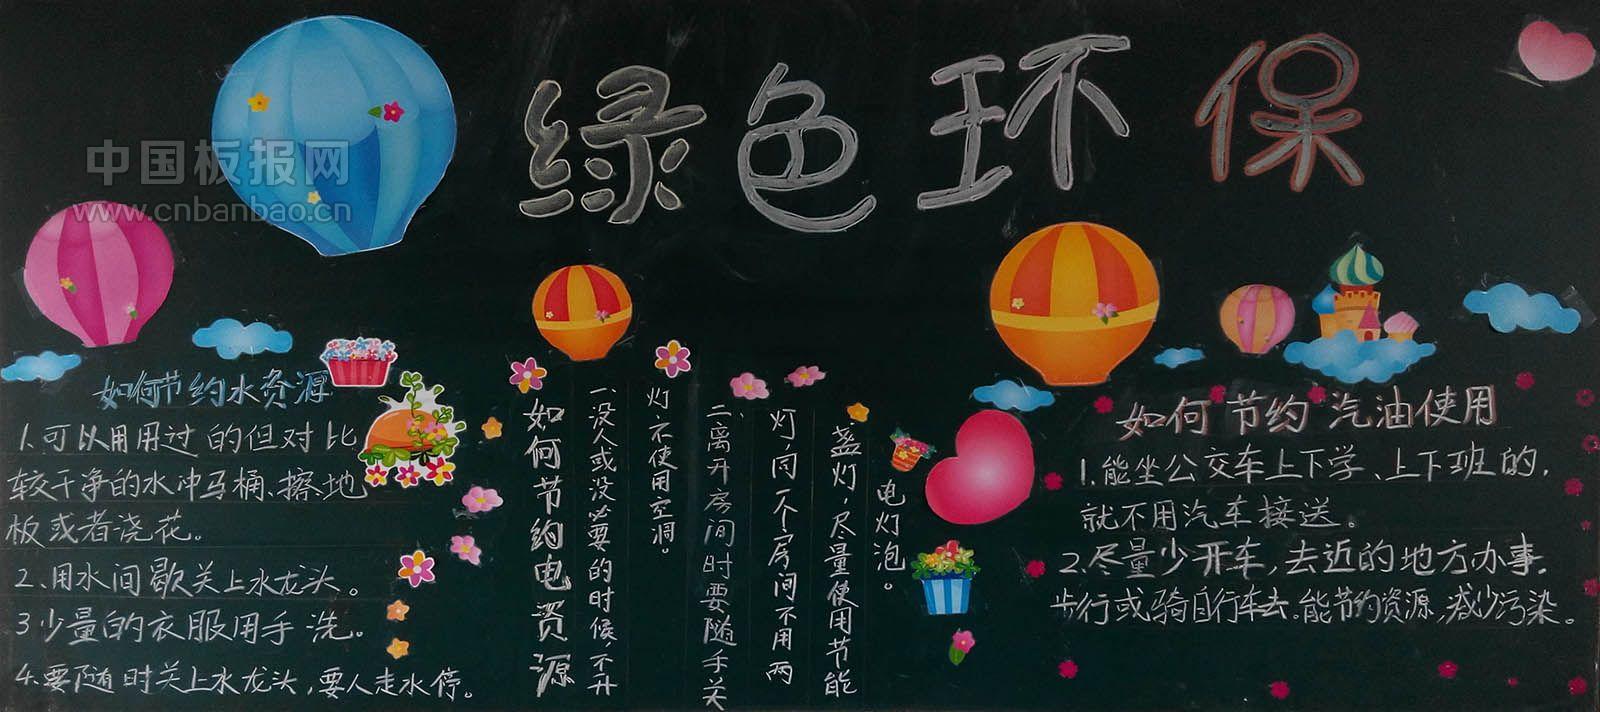 绿色环保
中国板报网
www.cnbanbao.cn
如何节约水资源
1.可以用用过的但对比
较干净的水冲马桶、擦地
板或者浇花。
2、用水间歇关上水龙头。
3少量的衣服用手洗。
4.要随时关上水龙头，要人走水停。
如何节约电资源
一、没人或没必要的时候，不开
灯、不使用空调。
二、离开房间时要随手关
灯、同一个房间不用两
盏灯，尽量使用节能
电灯泡。
如何节约汽油使用
1.能坐公交车上下学、上下班的，
就不用汽车接送。
2.尽量少开车，去近的地方办事，
步行或骑自行车去。能节约资源，减少污染。